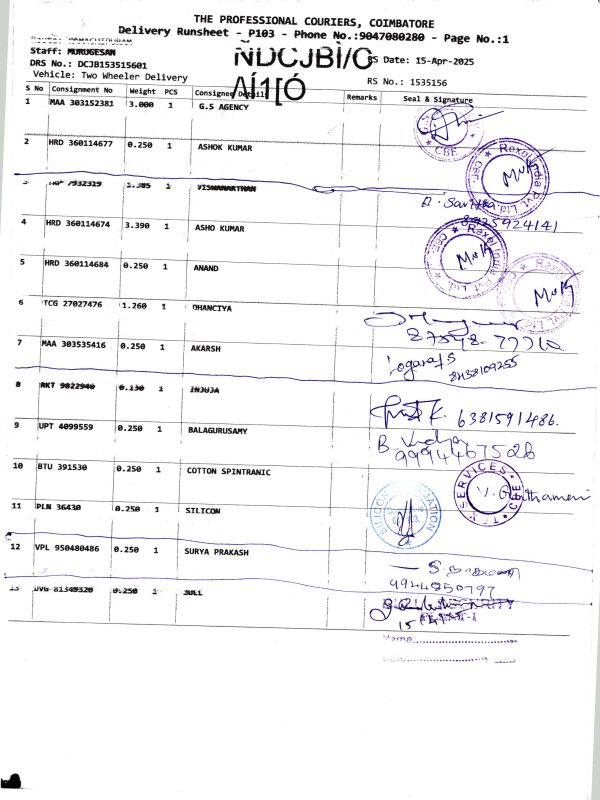 THE PROFESSIONAL COURIERS, COIMBATORE
Delivery Runsheet - P103 - Phone No.:9047080280 - Page No.:1
Staff: MURUGESAN
RS Date: 15-Apr-2025
DRS No.: DCJB153515601
Vehicle: Two Wheeler Delivery
RS No.: 1535156
S No Consignment No Weight PCS Consignee Details Remarks Seal & Signature
1 MAA 303152381 3.000 1 G.S AGENCY
CBE
2 HRD 360114677 0.250 1 ASHOK KUMAR
Rexel India Pvt. Ltd.
3 7932319 1.385 1 VISWANATHAN
8925924141
4 HRD 360114674 3.390 1 ASHO KUMAR
Rexel India Pvt. Ltd.
5 HRD 360114684 0.250 1 ANAND
6 TCG 27027476 1.260 1 DHANCIYA
7 MAA 303535416 0.250 1 AKARSH
Logaraj S
8 RKT 9822940 0.130 1 INJUJA
K. 6381591486.
9 UPT 4099559 0.250 1 BALAGURUSAMY
B Vidya
9994467526
10 BTU 391530 0.250 1 COTTON SPINTRANIC
SERVICES
11 PLN 36430 0.250 1 SILICON
SILICON
12 VPL 950480486 0.250 1 SURYA PRAKASH
9944250797
13 DVG 81349320 0.250 1 JULI
Name
Date